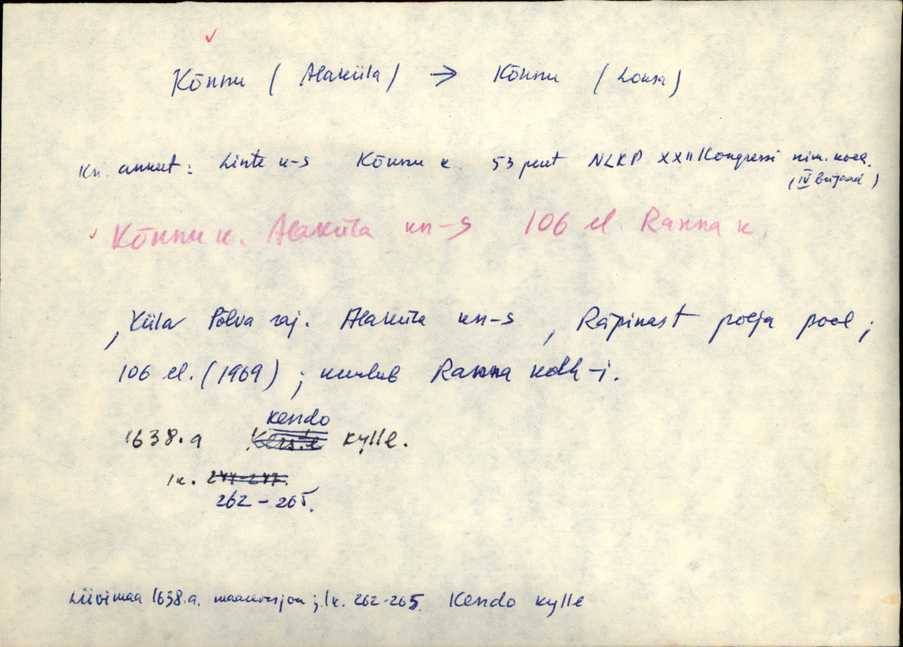 Kõnnu (Alaküla) → Kõnnu (Loksa)
kn. annet: Linte k-s Kõnnu k. 53 peret NLKP XXII Kongressi nim. kolh.
(IV brigaad)
Kõnnu k. Alaküla kn-s 106 el. Ranna k.
, küla Põlva raj. Alaküla kn-s, Räpinast põhja pool;
106 el. (1969); kuulub Ranna kolh-i.
kendo
1638.a kylle.
lk. 244-247.
262-265.
Liivimaa 1638.a. maarevisjon; lk. 262-265. Kendo kylle